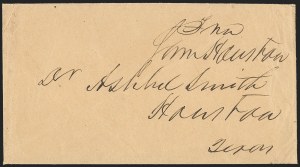 From
Sam Houston
Dr Ashbel Smith
Houston
Texas